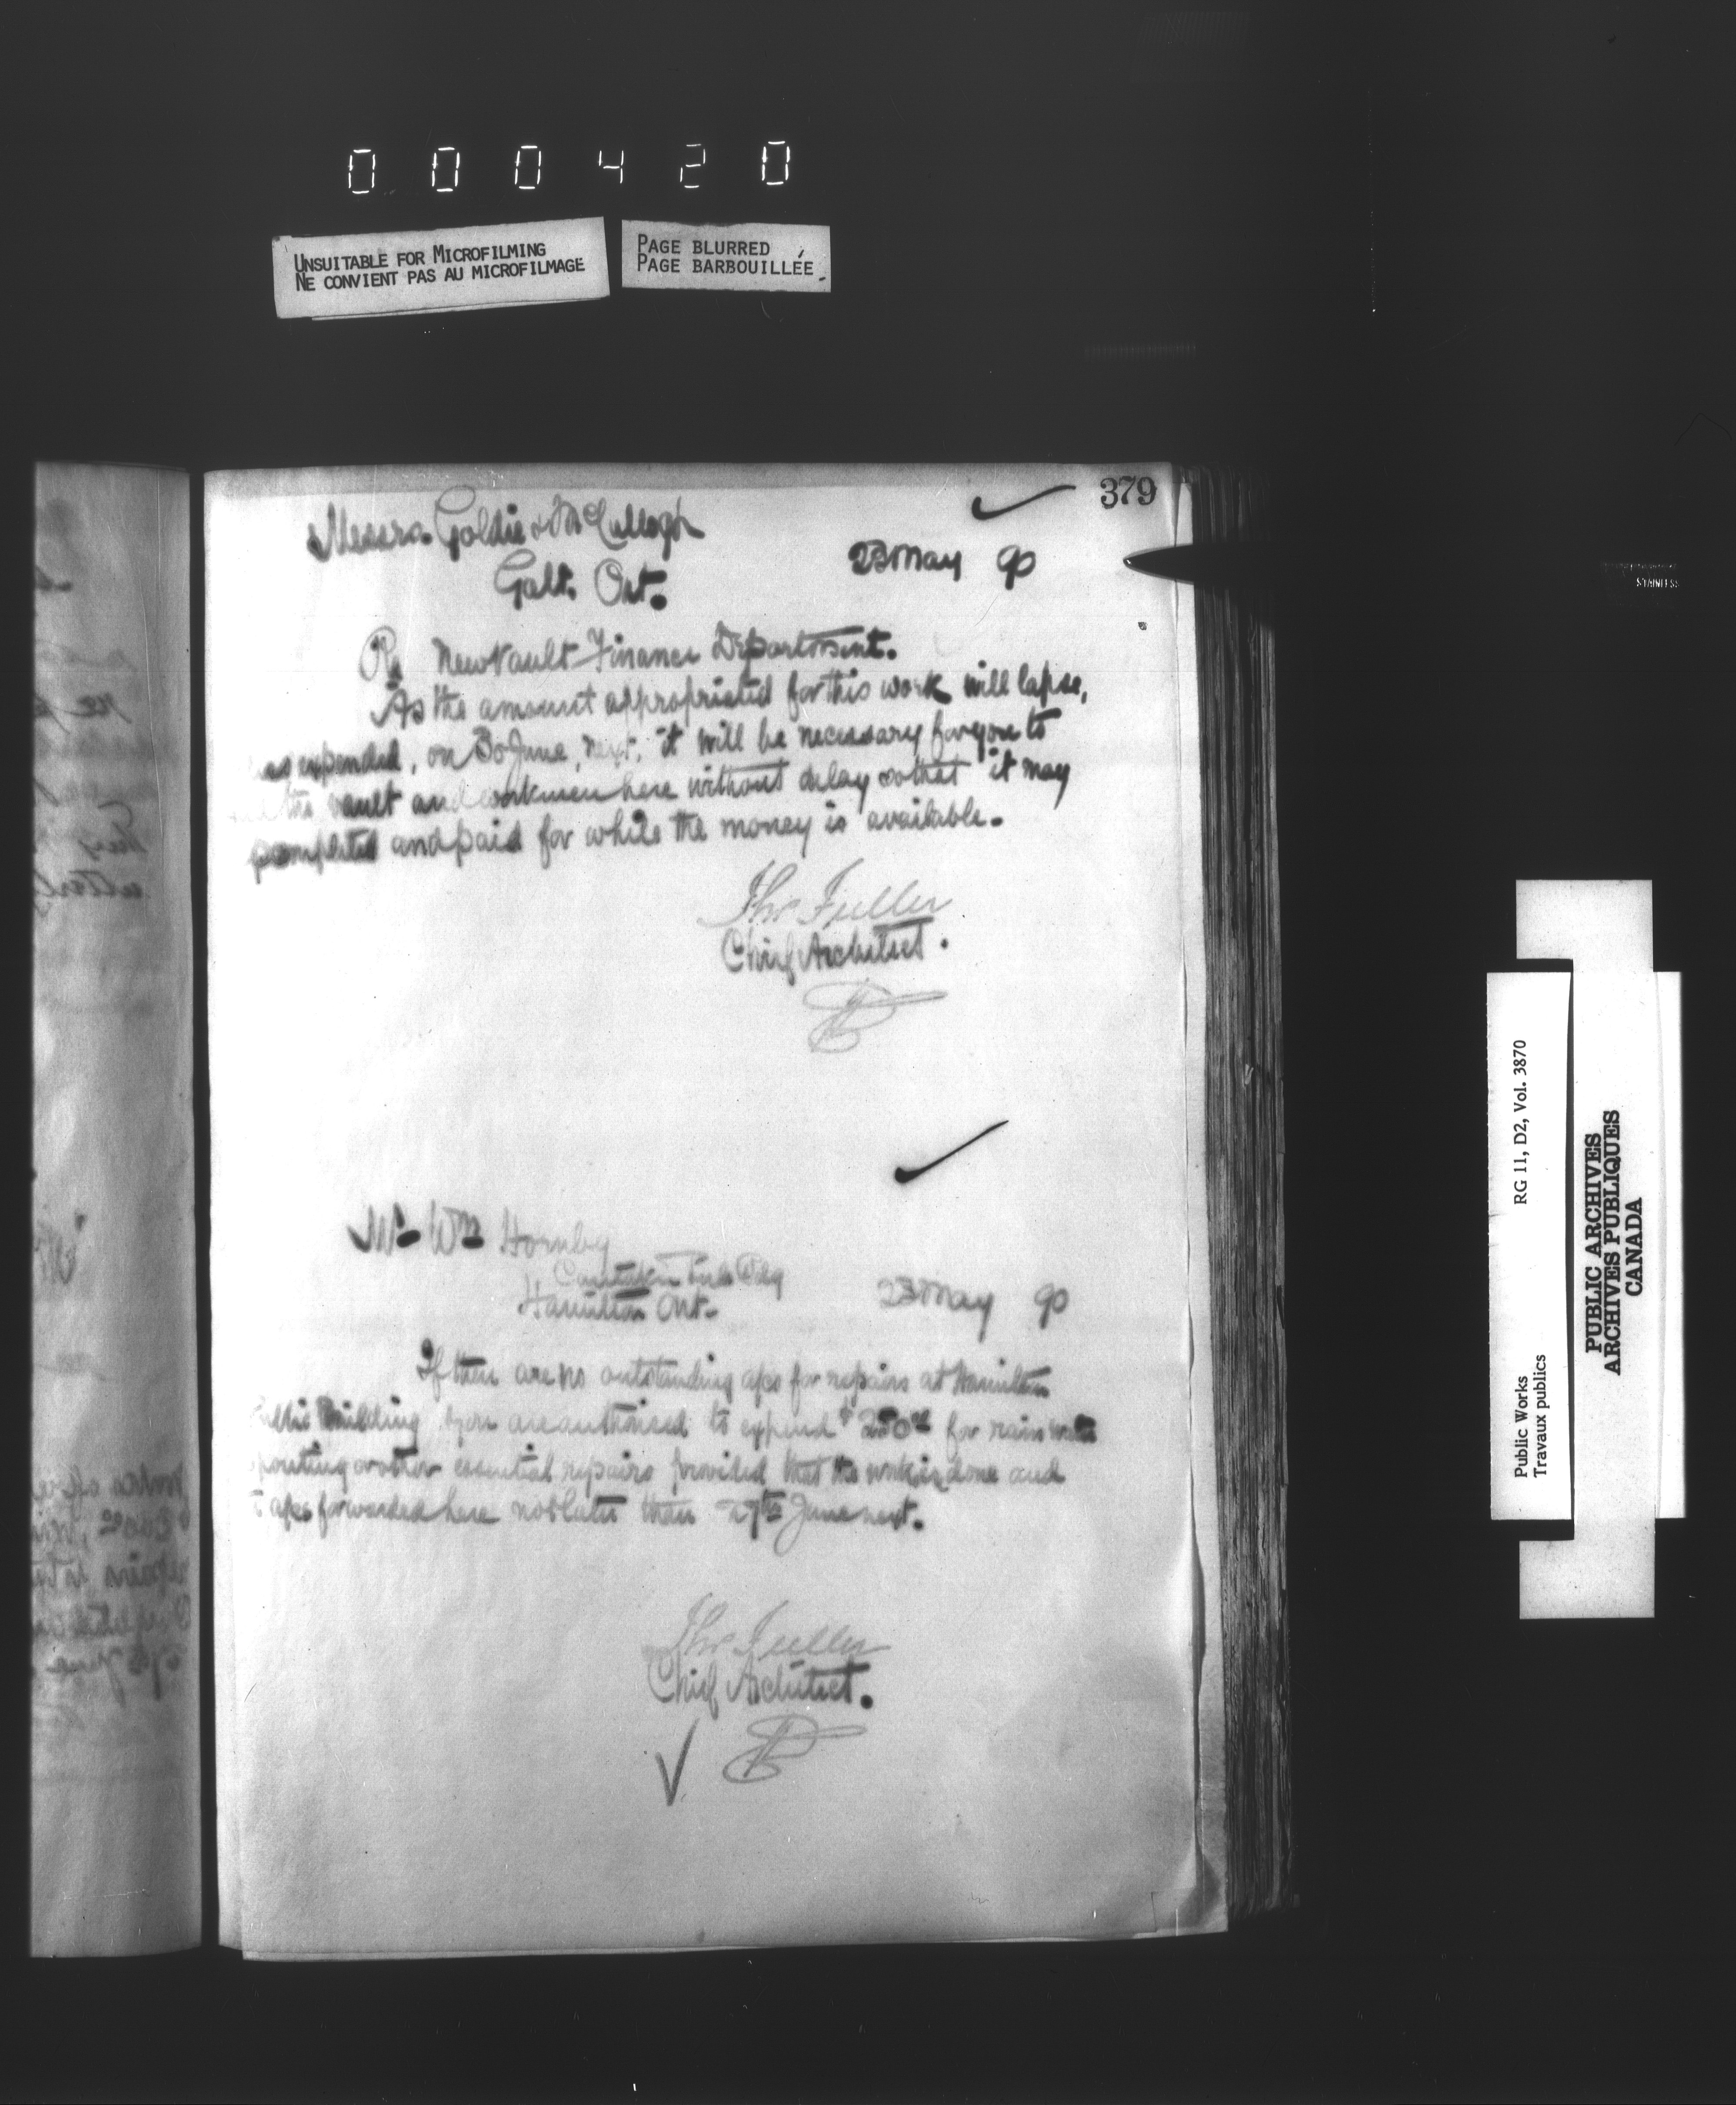 000420
UNSUITABLE FOR MICROFILMING
NE CONVIENT PAS AU MICROFILMAGE
PAGE BLURRED
PAGE BARBOUILLÉE
379
Messrs. Goldie & McCullogh
Galt. Ont.
23 May 90
Re New Vault Finance Department.
As the amount appropriated for this work will lapse,
expended, on 30 June, next, it will be necessary for you to
the vault and workmen here without delay so that it may
completed and paid for while the money is available.
Thos Fuller
Chief Architect.
Mr. Wm Hornby
Caretaker Pub Bldg
Hamilton Ont.
23 May 90
If there are no outstanding a/cs for repairs at Hamilton
Public Building, you are authorised to expend $250 for rain water
spouting or other essential repairs provided that the work is done and
a/cs forwarded here not later than 27th June next.
Thos Fuller
Chief Architect.
STAINLESS
Public Works
Travaux publics
RG 11, D2, Vol. 3870
PUBLIC ARCHIVES
ARCHIVES PUBLIQUES
CANADA